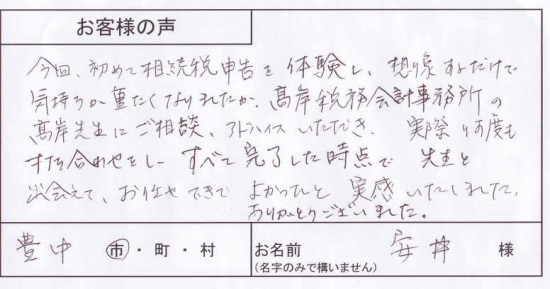 お客様の声
今回、初めて相続税申告を体験し、想像するだけで
気持ちが重たくなりましたが、髙岸税務会計事務所の
髙岸先生にご相談、アドバイスいただき、実際何度も
打ち合わせをし、すべて完了した時点で先生と
出会えて、お任せできてよかったと実感いたしました。
ありがとうございました。
豊中 市・町・村 お名前 安井 様
(名字のみで構いません)